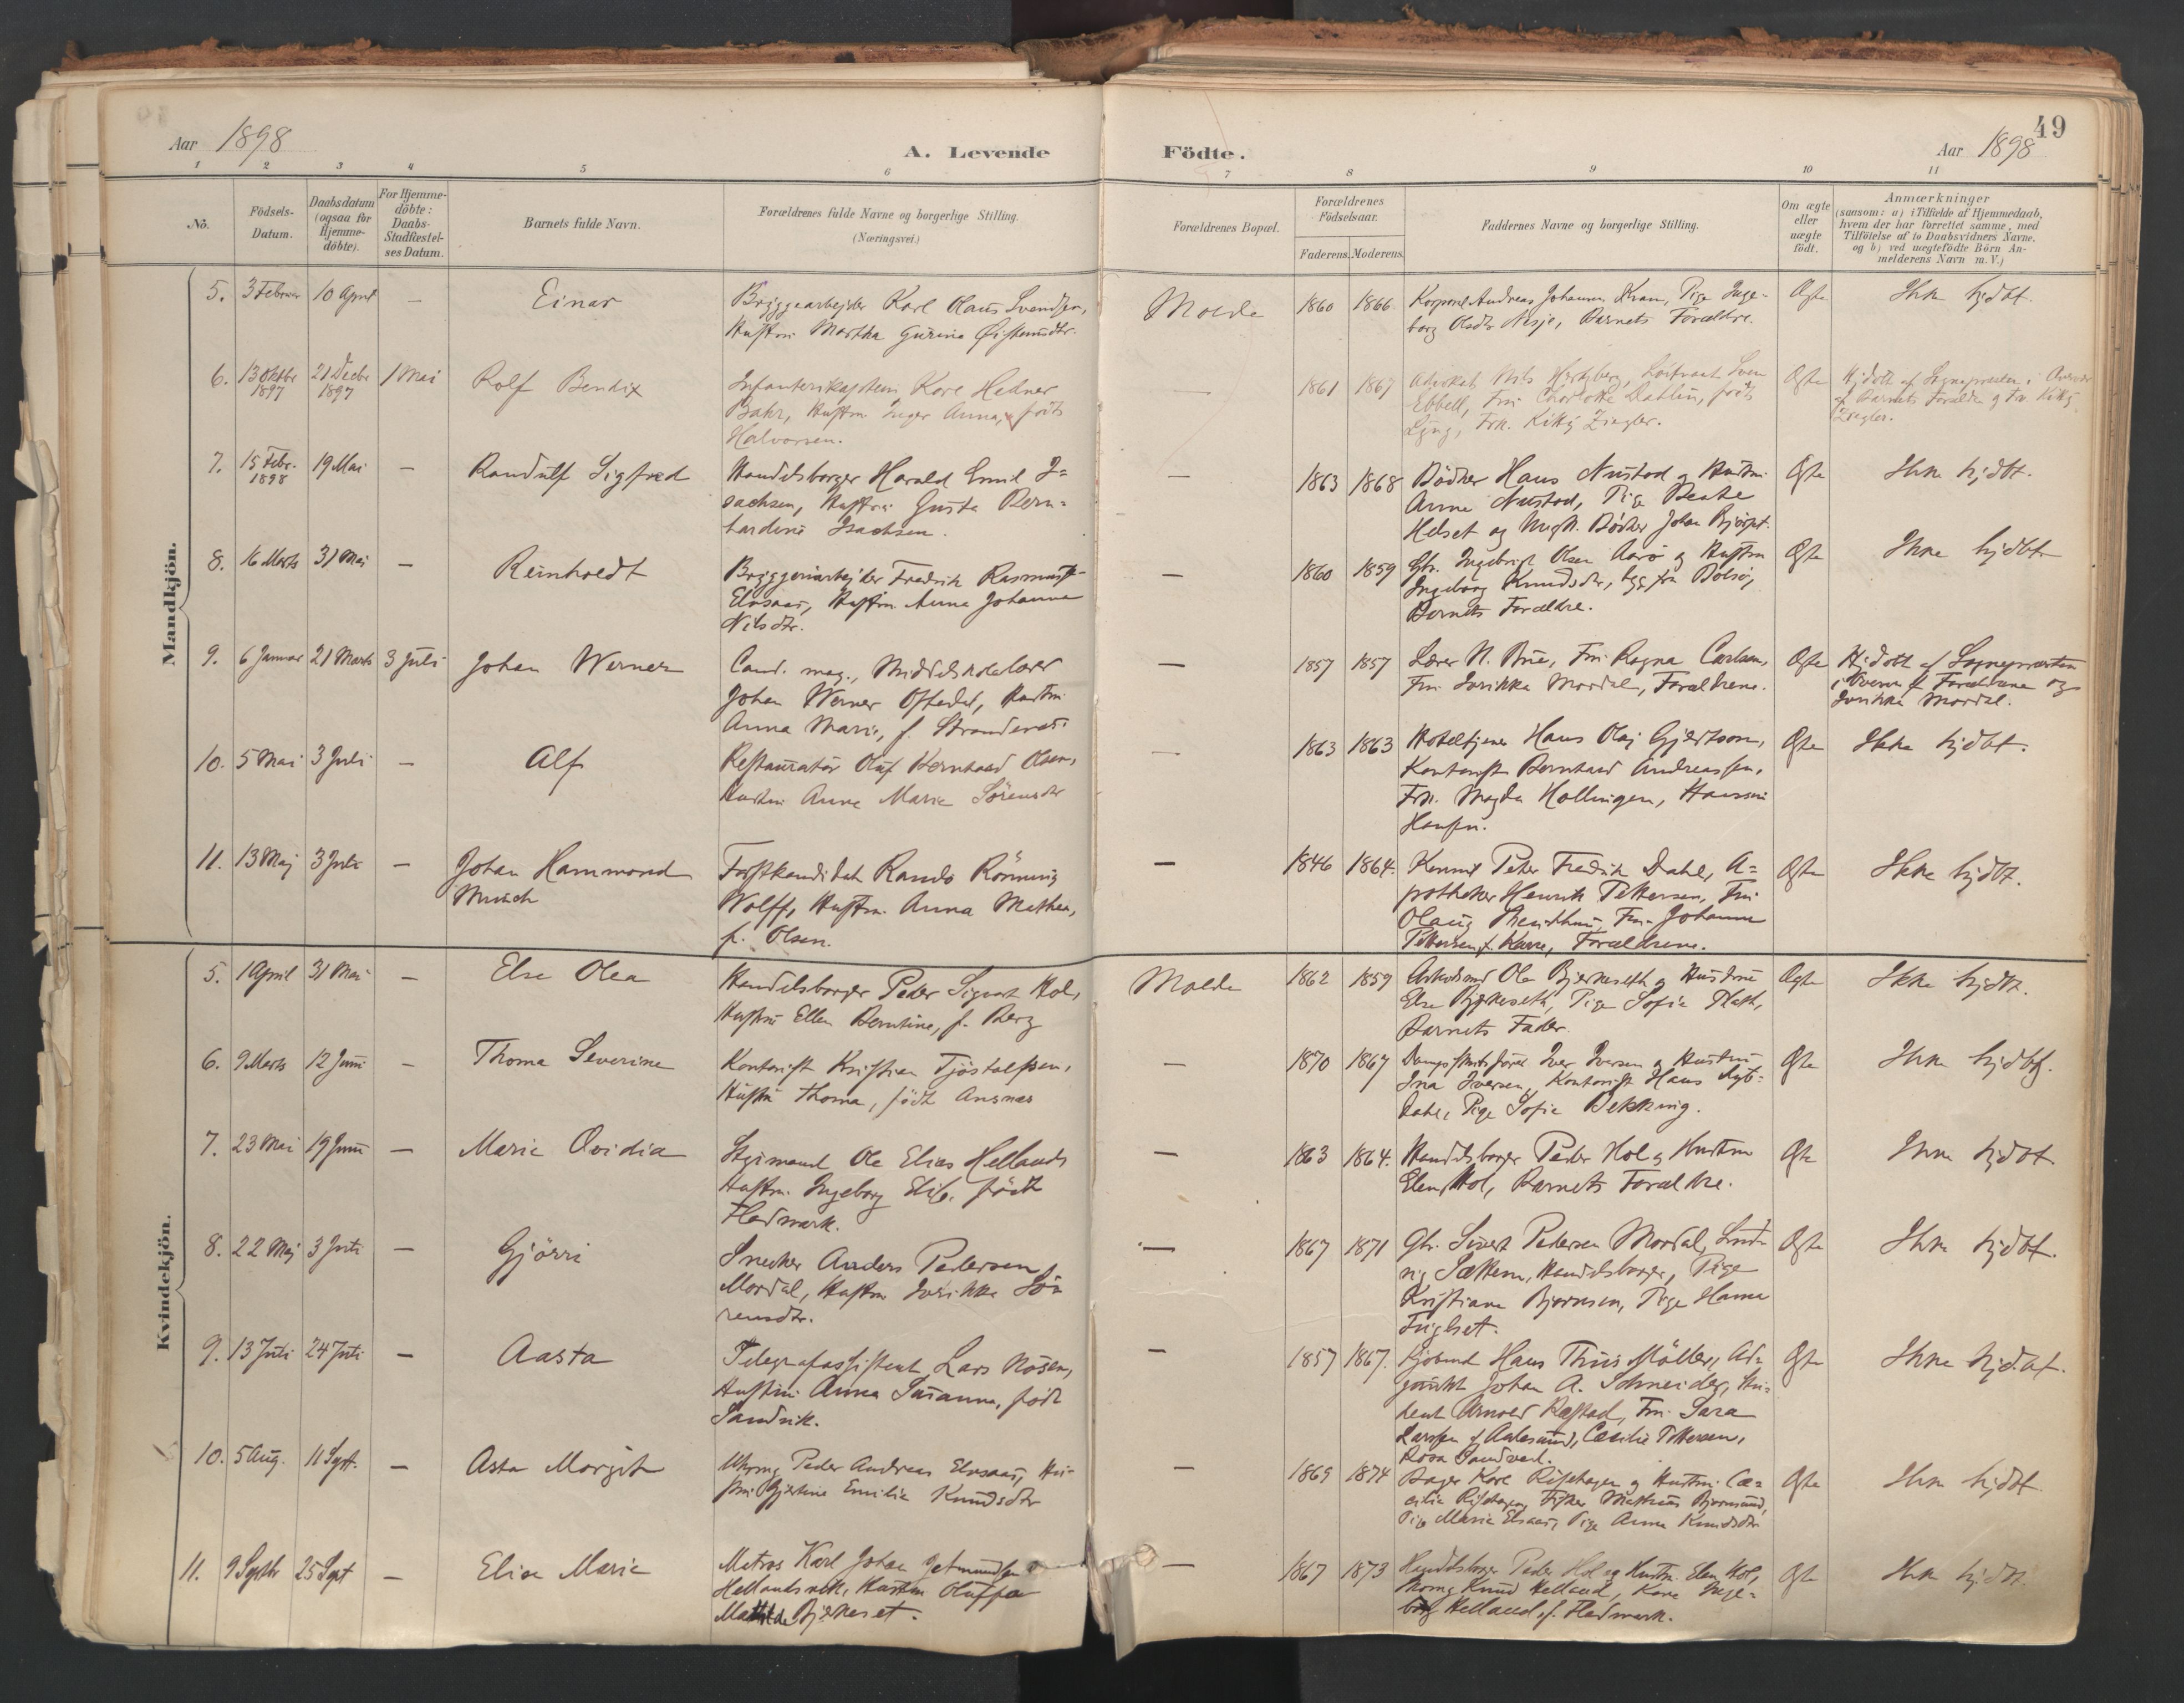 49
Aar 1898
A. Levende Födte.
Aar 1898
1 2 3 4 5 6 7 8 9 10 11
No.
Födsels-
Datum.
Daabsdatum
(ogsaa for
Hjemme-
döbte).
For Hjemme-
döbte:
Daabs-
Stadfæstel-
ses Datum.
Barnets fulde Navn.
Forældrenes fulde Navne og borgerlige Stilling.
(Næringsvei.)
Forældrenes Bopæl.
Forældrenes
Födselsaar.
Faderens. Moderens.
Faddernes Navne og borgerlige Stilling.
Om ægte
eller
uægte
födt.
Anmærkninger
(saasom: a) i Tilfælde af Hjemmedaab,
hvem der har forrettet samme, med
Tilföielse af to Daabsvidners Navne,
og b) ved uægtefödte Börn An-
melderens Navn m. V.)
Mandkjön.
5. 3 Februar 10 April — Einar
Bryggearbejder Karl Olaus Svendsen,
Hustru Martha Gurine Øistensdtr.
Molde 1860 1866
Korporal Andreas Johansen Kran, Pige Inge-
borg Olsdtr Nesje, Barnets Forældre.
Ægte Ikke hjdbt.
6. 13 Oktbr 1897 21 Decbr 1897 1 Mai Rolf Bendix
Infanterikaptein Kare Hedner
Bahr, Hustru Inger Anna, født
Halvorsen.
— 1861 1867
Advokat Nils Hertzberg, Løitnant Sven
Ebbell, Fru Charlotte Dahlin, født
Lyng, Frk. Kitty Ziegler.
Ægte Hjdøbt af Sognepræsten i Overvær
af Barnets Forældre og Frk. Kitty
Ziegler.
7. 15 Febr. 1898 19 Mai — Randulf Sigfred
Handelsborger Harald Emil I-
sachsen, Hustru Gusta Bern-
hardine Isachsen.
— 1863 1868
Bødker Hans Nustad og Hustru
Anna Nustad, Pige Beate
Helset og Ungk. Bødker Johan
Ægte Ikke hjdbt.
8. 16 Marts 31 Mai — Reinholdt
Bryggeriarbejder Fredrik Rasmus
Elvsaas, Hustru Anna Johanna
Nilsdtr.
— 1860 1859
Gbr. Ingebrigt Olsen Aarø og Hustru
Ingeborg Knudsdtr, begge fra Bolsø,
Barnets Forældre.
Ægte Ikke hjdbt
9. 6 Januar 21 Marts 3 Juli Johan Werner
Cand. mag., Middelskolelærer
Johan Werner Oftedal, Hustru
Anna Marie, f.
— 1857 1857
Lærer N. Bue, Fru Ragna Carlsen,
Fru Iverikka Mordal, Forældrene.
Ægte Hjdøbt af Sognepræsten
i Overvær af Forældrene og
Iverikka Mordal.
10. 5 Mai 3 Juli — Alf
Restauratør Oluf Bernhard Olsen,
Hustru Anne Marie Sørensdtr
— 1863 1863
Hoteltjener Hans Olaj Gjertsen,
Kontorist Bernhard Andreassen,
Frk. Magda Hollingen, Hansine
Hansen.
Ægte Ikke hjdbt.
11. 13 Maj 3 Juli — Johan Hammond
Munch
Forstkandidat Rando Rönning
Wolff, Hustru Anna Mathea,
f. Olsen.
— 1846 1864.
Konsul Peter Fredrik Dahl, A-
potheker Henrik Pettersen, Fru
Olaug Fru Johanne
Pettersen, Forældrene.
Ægte Ikke hjdbt.
Kvindekjön.
5. 1 April 31 Mai — Else Olea
Handelsborger Peder Sigvart Hol,
Hustru Ellen Berntine, f. Berg
Molde 1862 1859
Ole Bjerkeseth og Hustru
Else Bjerkeseth, Pige Sofie
Barnets Fader.
Ægte Ikke hjdbt.
6. 9 Marts 12 Juni — Thoma Severine
Kontorist Kristian Tjøstolfsen,
Hustru Thoma, født Ansnes
— 1870 1867
Iver Iversen og Hustru
Ina Iversen, Kontorist Hans
Dahl, Pige Sofie Dekking.
Ægte Ikke hjdbt.
7. 23 Mai 19 Juni — Marie Ovidia
Styrmand Ole Elias Helland
Hustru Ingeborg født
Hedmark.
— 1863 1864.
Handelsborger Peder Hol og Hustru
Elen Hol, Barnets Forældre.
Ægte Ikke hjdbt.
8. 22 Maj 3 Juli — Gjørri
Snedker Anders Pedersen
Mordal, Hustru Iverikka Sö-
rensdtr.
— 1867 1871
Gbr. Sivert Pedersen Mordal,
Sættem, Handelsborger, Pige
Kristiane Bjørnsen, Pige Hanna
Fuglset.
Ægte Ikke hjdbt.
9. 13 Juli 24 Juli — Aasta
Telegrafassistent Lars Nosen,
Hustru Anna Susanna, født
Sandvik.
— 1857 1867.
Kjøbmd Hans Thiis Möller, Ad-
junkt Johan A. Schneider, Stu-
dent Arnold Ræstad, Fru Sara
Larssen af Aalesund, Cecilie Pettersen,
Rosa Sandved.
Ægte Ikke hjd.bt.
10. 5 Aug. 11 Sept. — Asta Margit
Peder Andreas Elvsaas, Hu-
stru Gjertine Emilie Knudsdtr
— 1865 1874
Bager Karl Riishagen og Hustru Cæ-
cilie Riishagen, Fisker Mathias Bjørnsund,
Pige Marie Elvsaas, Pige Anna Knudsdtr
Ægte Ikke hjdbt
11. 9 Septbr 25 Sept — Elise Marie
Matros Karl Johan
Hellandsvik, Hustru Oluffa
Mathilde Bjerkeset.
— 1867 1873
Handelsborger Peder Hol og Hustru Elen Hol,
Knud Helland, Kone Inge-
borg Helland, f. Hedmark.
Ægte Ikke hjdbt.